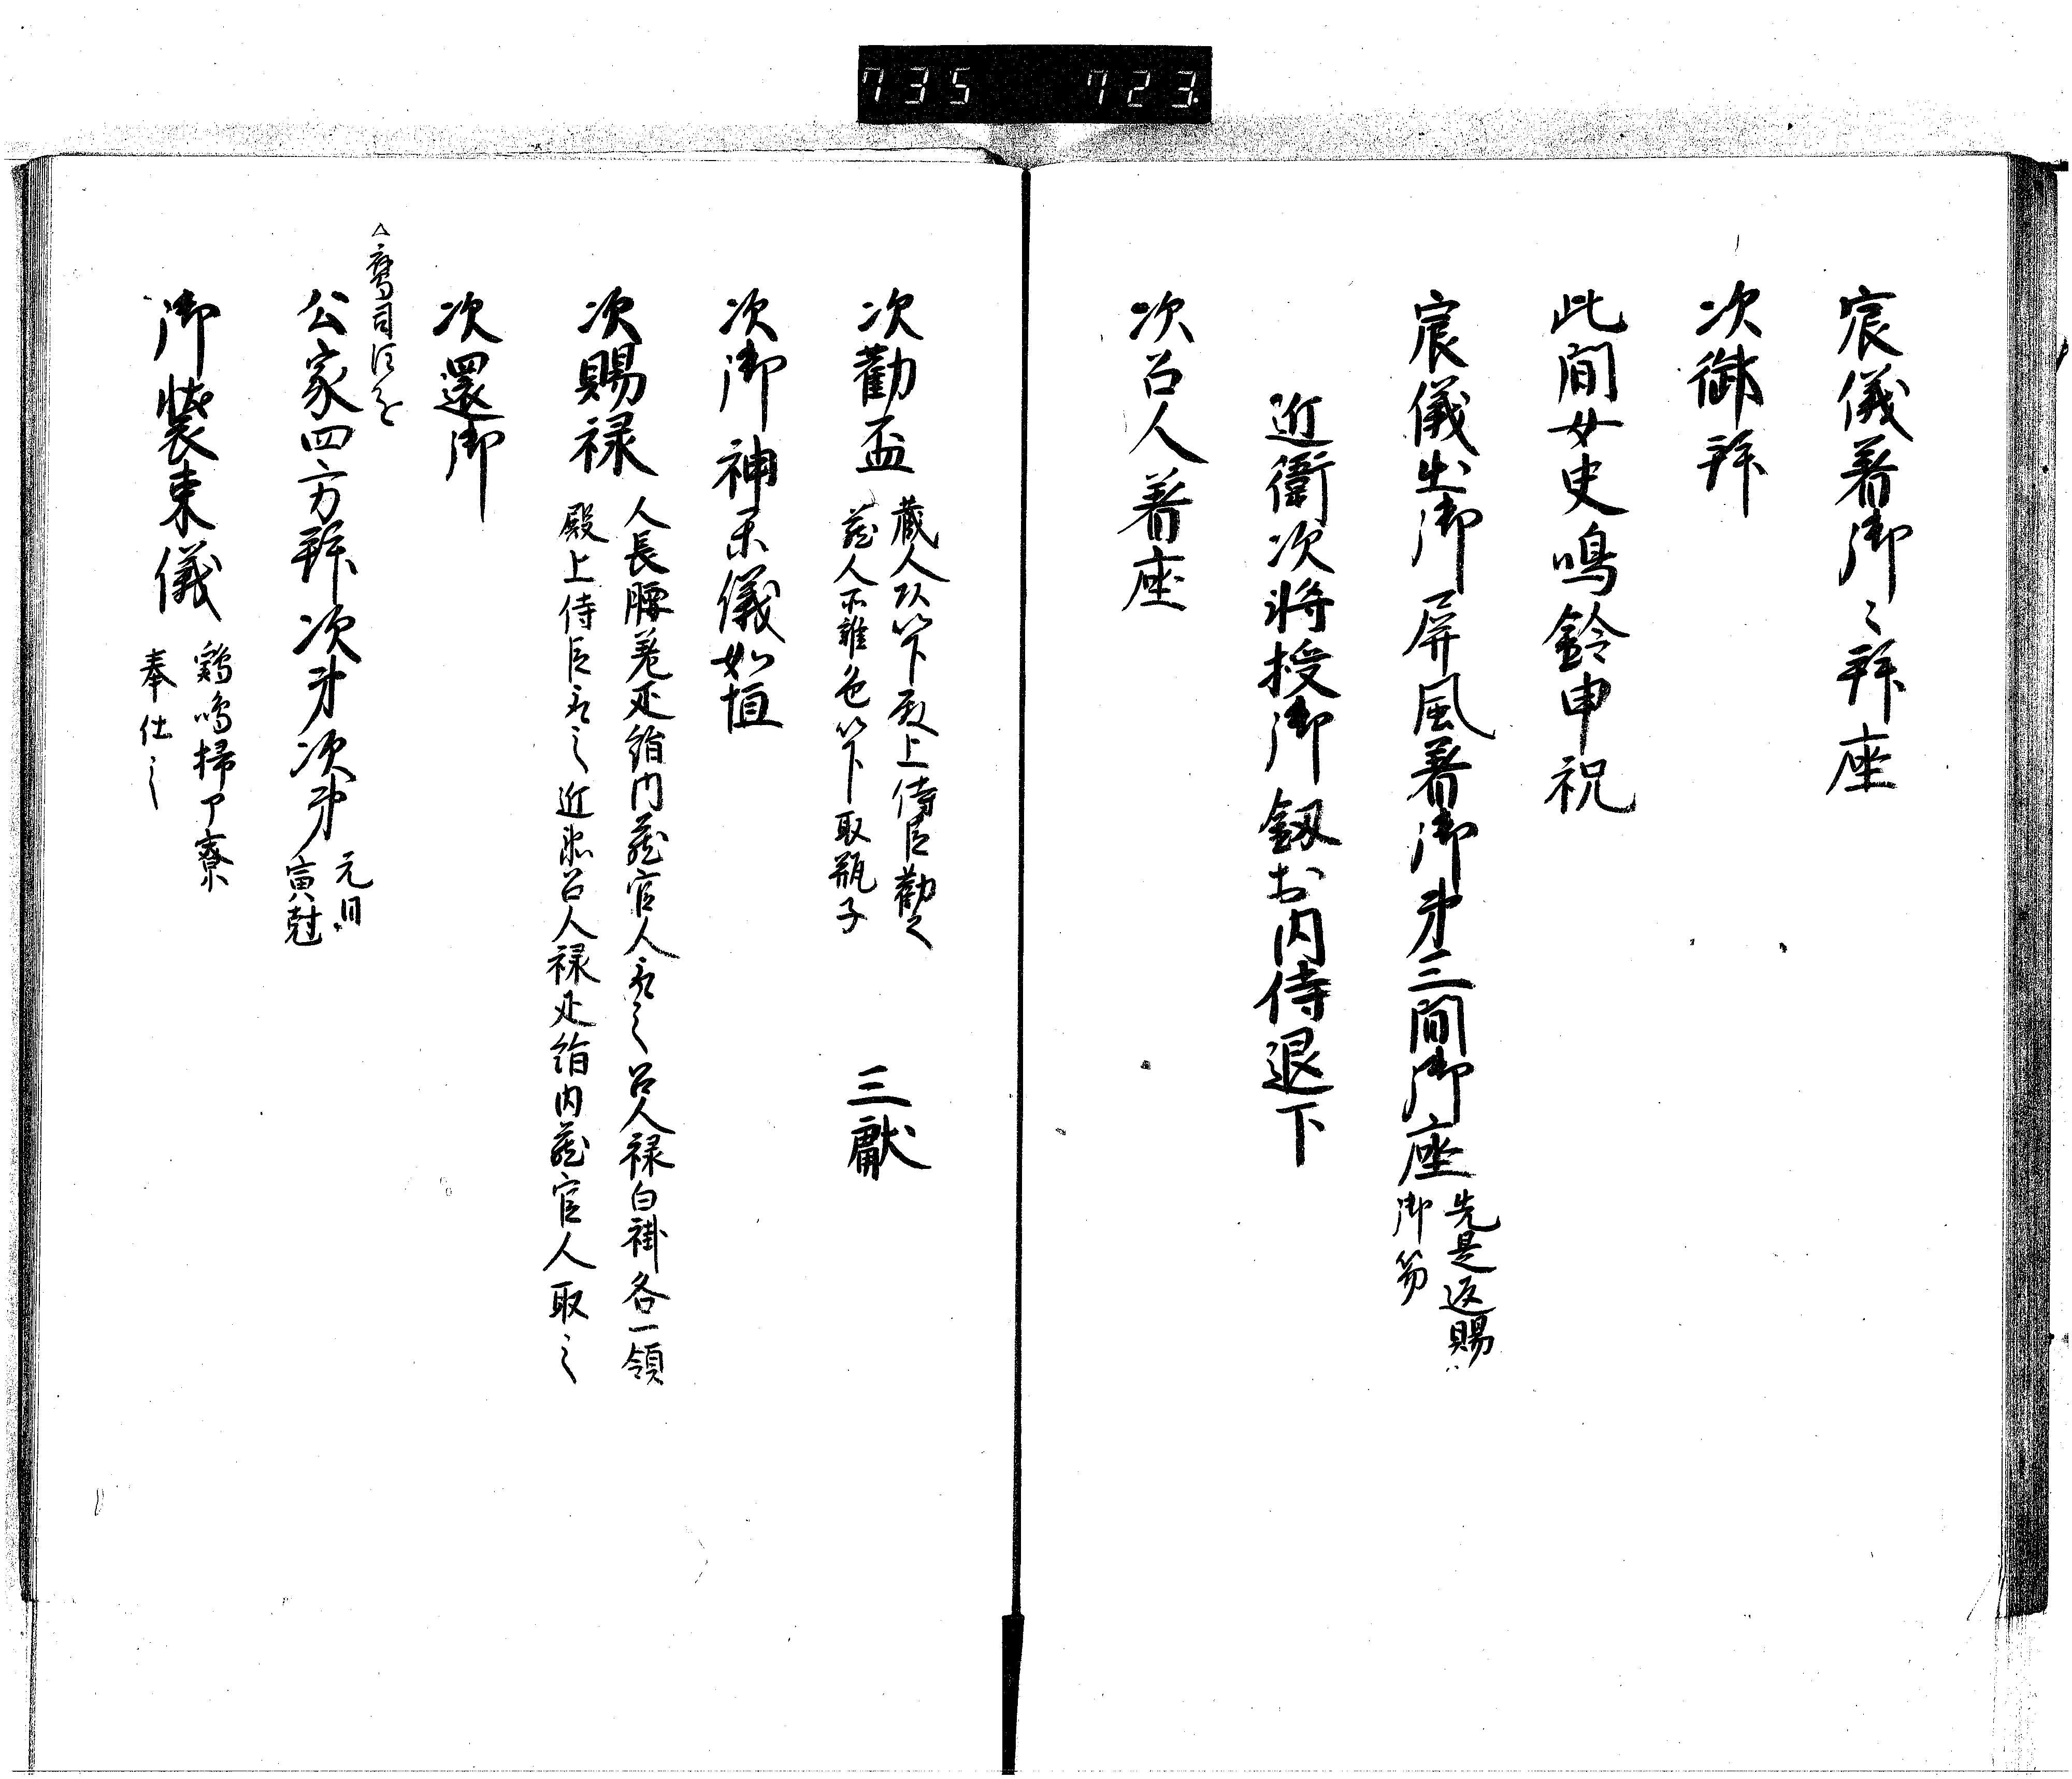 735 723
宸儀著御〻拜座
次御拜
此間女史鳴鈴申祝
宸儀出御屏風著御第三間御座
先是返賜
御笏
近衛次将授御釼於内侍退下
次召人著座
次勸盃
蔵人頭以下殿上侍臣勸之
蔵人所雜色以下取瓶子
三献
次御神楽儀如恒
次賜禄
人長腰差疋絹内蔵官人取之召人禄白褂各一領
殿上侍臣取之近衛召人禄疋絹内蔵官人取之
次還御
△鷹司
公家四方拜次第次第
元日
寅尅
御装束儀
鷄鳴掃部寮
奉仕之